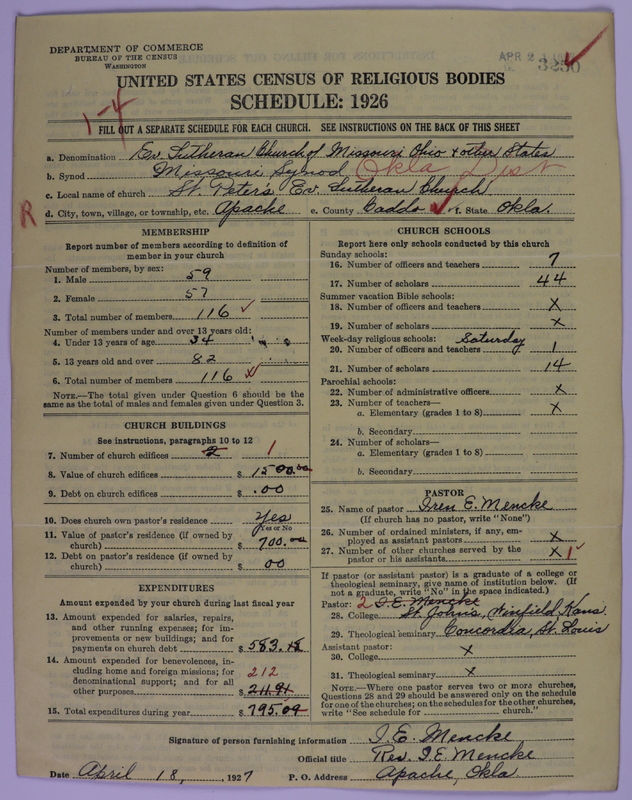 DEPARTMENT OF COMMERCE
BUREAU OF THE CENSUS
WASHINGTON
APR 2
3250
UNITED STATES CENSUS OF RELIGIOUS BODIES
SCHEDULE: 1926
1-4
FILL OUT A SEPARATE SCHEDULE FOR EACH CHURCH. SEE INSTRUCTIONS ON THE BACK OF THIS SHEET
a. Denomination Ev. Lutheran Church of Missouri Ohio & other States
b. Synod Missouri Synod Okla Dist
c. Local name of church St. Peter's Ev. Lutheran Church
R d. City, town, village, or township, etc. Apache e. County Caddo f. State Okla.
MEMBERSHIP
Report number of members according to definition of
member in your church
Number of members, by sex:
1. Male 59
2. Female 57
3. Total number of members 116
Number of members under and over 13 years old:
4. Under 13 years of age 34
5. 13 years old and over 82
6. Total number of members 116
NOTE.—The total given under Question 6 should be
the same as the total of males and females given under Question 3.
CHURCH BUILDINGS
See instructions, paragraphs 10 to 12
7. Number of church edifices 2 1
8. Value of church edifices $ 1500.00
9. Debt on church edifices $ .00
10. Does church own pastor's residence Yes
Yes or No
11. Value of pastor's residence (if owned by
church) $ 700.00
12. Debt on pastor's residence (if owned by
church) $ 00
EXPENDITURES
Amount expended by your church during last fiscal year
13. Amount expended for salaries, repairs,
and other running expenses; for im-
provements or new buildings; and for
payments on church debt $ 583.15
14. Amount expended for benevolences, in-
cluding home and foreign missions; for
denominational support; and for all
other purposes 212 $ 211.91
15. Total expenditures during year $ 795.09
CHURCH SCHOOLS
Report here only schools conducted by this church
Sunday schools:
16. Number of officers and teachers 7
17. Number of scholars 44
Summer vacation Bible schools:
18. Number of officers and teachers X
19. Number of scholars X
Week-day religious schools: Saturday
20. Number of officers and teachers 1
21. Number of scholars 14
Parochial schools:
22. Number of administrative officers X
23. Number of teachers—
a. Elementary (grades 1 to 8) X
b. Secondary
24. Number of scholars—
a. Elementary (grades 1 to 8)
b. Secondary
PASTOR
25. Name of pastor Iren E. Mencke
(If church has no pastor, write "None")
26. Number of ordained ministers, if any, em-
ployed as assistant pastors X
27. Number of other churches served by the
pastor or his assistants X 1
If pastor (or assistant pastor) is a graduate of a college or
theological seminary, give name of institution below. (If
not a graduate, write "No" in the space indicated.)
Pastor: 2 I. E. Mencke
28. College St. John's, Winfield, Kans.
29. Theological seminary Concordia, St. Louis
Assistant pastor:
30. College X
31. Theological seminary X
NOTE.—Where one pastor serves two or more churches,
Questions 28 and 29 should be answered only on the schedule
for one of the churches; on the schedules for the other churches,
write "See schedule for church."
Signature of person furnishing information I. E. Mencke
Official title Rev. I. E. Mencke
Date April 18, 1927 P. O. Address Apache, Okla.